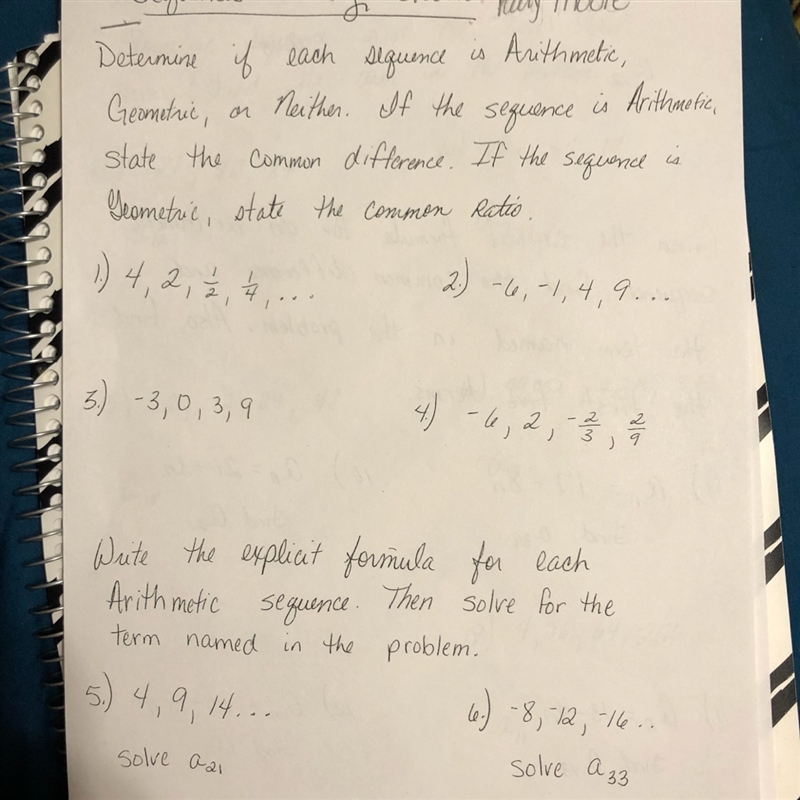 Determine if each sequence is Arithmetic,
Geometric, or Neither. If the sequence is Arithmetic,
state the common difference. If the sequence is
Geometric, state the common Ratio.
1.) 4, 2, 1/2, 1/4, ... 2.) -6, -1, 4, 9...
3.) -3, 0, 3, 9 4.) -6, 2, -2/3, 2/9
Write the explicit formula for each
Arithmetic sequence. Then solve for the
term named in the problem.
5.) 4, 9, 14... 6.) -8, -12, -16..
solve a₂₁ solve a₃₃